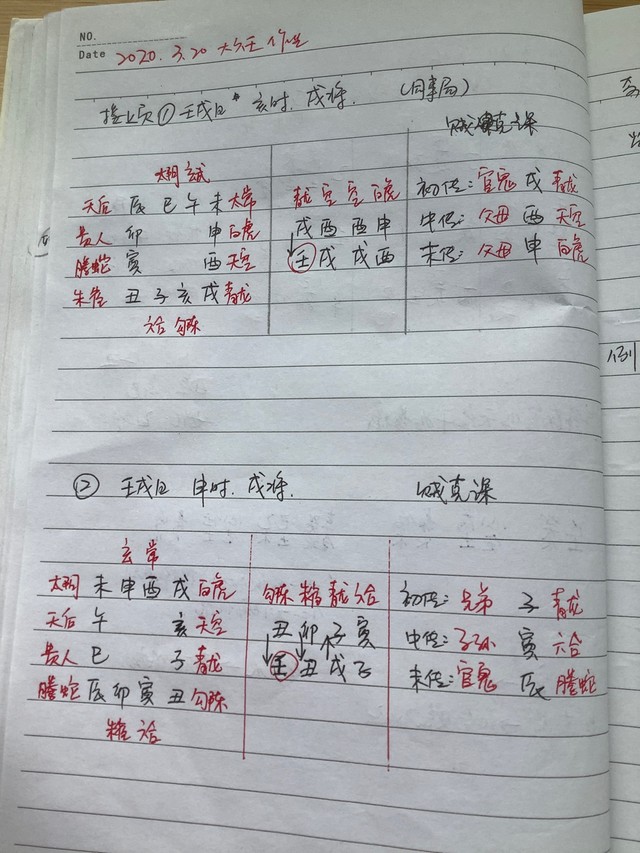 NO.
Date 2020.3.20 大六壬作业
接上页① 壬戌日 亥时. 戌将. (用事局)
贼克课
太阴 玄武
天后 辰 巳 午 未 太常 青龙 空 空 白虎 初传: 官鬼 戌 青龙
贵人 卯 申 白虎 戌 酉 酉 申 中传: 父母 酉 天空
螣蛇 寅 酉 天空 壬 戌 戌 酉 末传: 父母 申 白虎
朱雀 丑 子 亥 戌 青龙
六合 勾陈
例
② 壬戌日 申时. 戌将. 贼克课
玄 常
太阴 未 申 酉 戌 白虎 勾陈 朱雀 青龙 六合 初传: 兄弟 子 青龙
天后 午 亥 天空 丑 卯 子 寅 中传: 子孙 寅 六合
贵人 巳 子 青龙 壬 丑 戌 子 末传: 官鬼 辰 螣蛇
螣蛇 辰 卯 寅 丑 勾陈
朱雀 六合